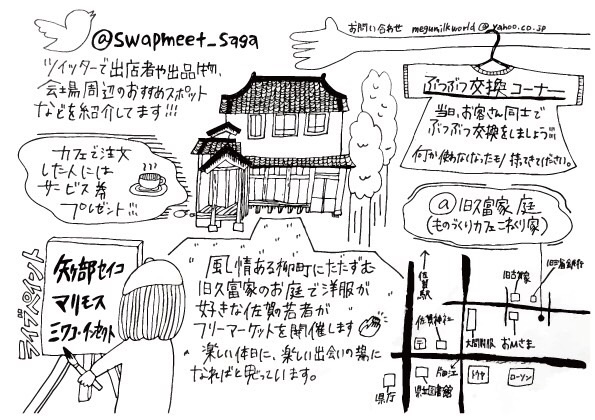 @swapmeet_saga
ツイッターで出店者や出品物、
会場周辺のおすすめスポット
などを紹介してます!!!
お問い合わせ megumilkworld@yahoo.co.jp
ぶつぶつ交換コーナー
当日、お客さん同士で
ぶつぶつ交換をしましょう!!!
何か使わなくなったモノ持ってきてください。
カフェで注文
した人には
サービス券
プレゼント!!!
@旧久富家 庭
(ものづくりカフェこねくり家)
ライブペイント
矢部セイコ
マリモス
ミワコ・インセクト
風情ある柳町にただずむ
旧久富家のお庭で洋服が
好きな佐賀の若者が
フリーマーケットを開催します
楽しい休日に、楽しい出会いの場に
なればと思っています。
↑佐賀駅
旧古賀家
旧古賀銀行
佐賀神社
〒
大閤閣服
おMさま
片田江
県立図書館
県庁
トヨタ
ローソン